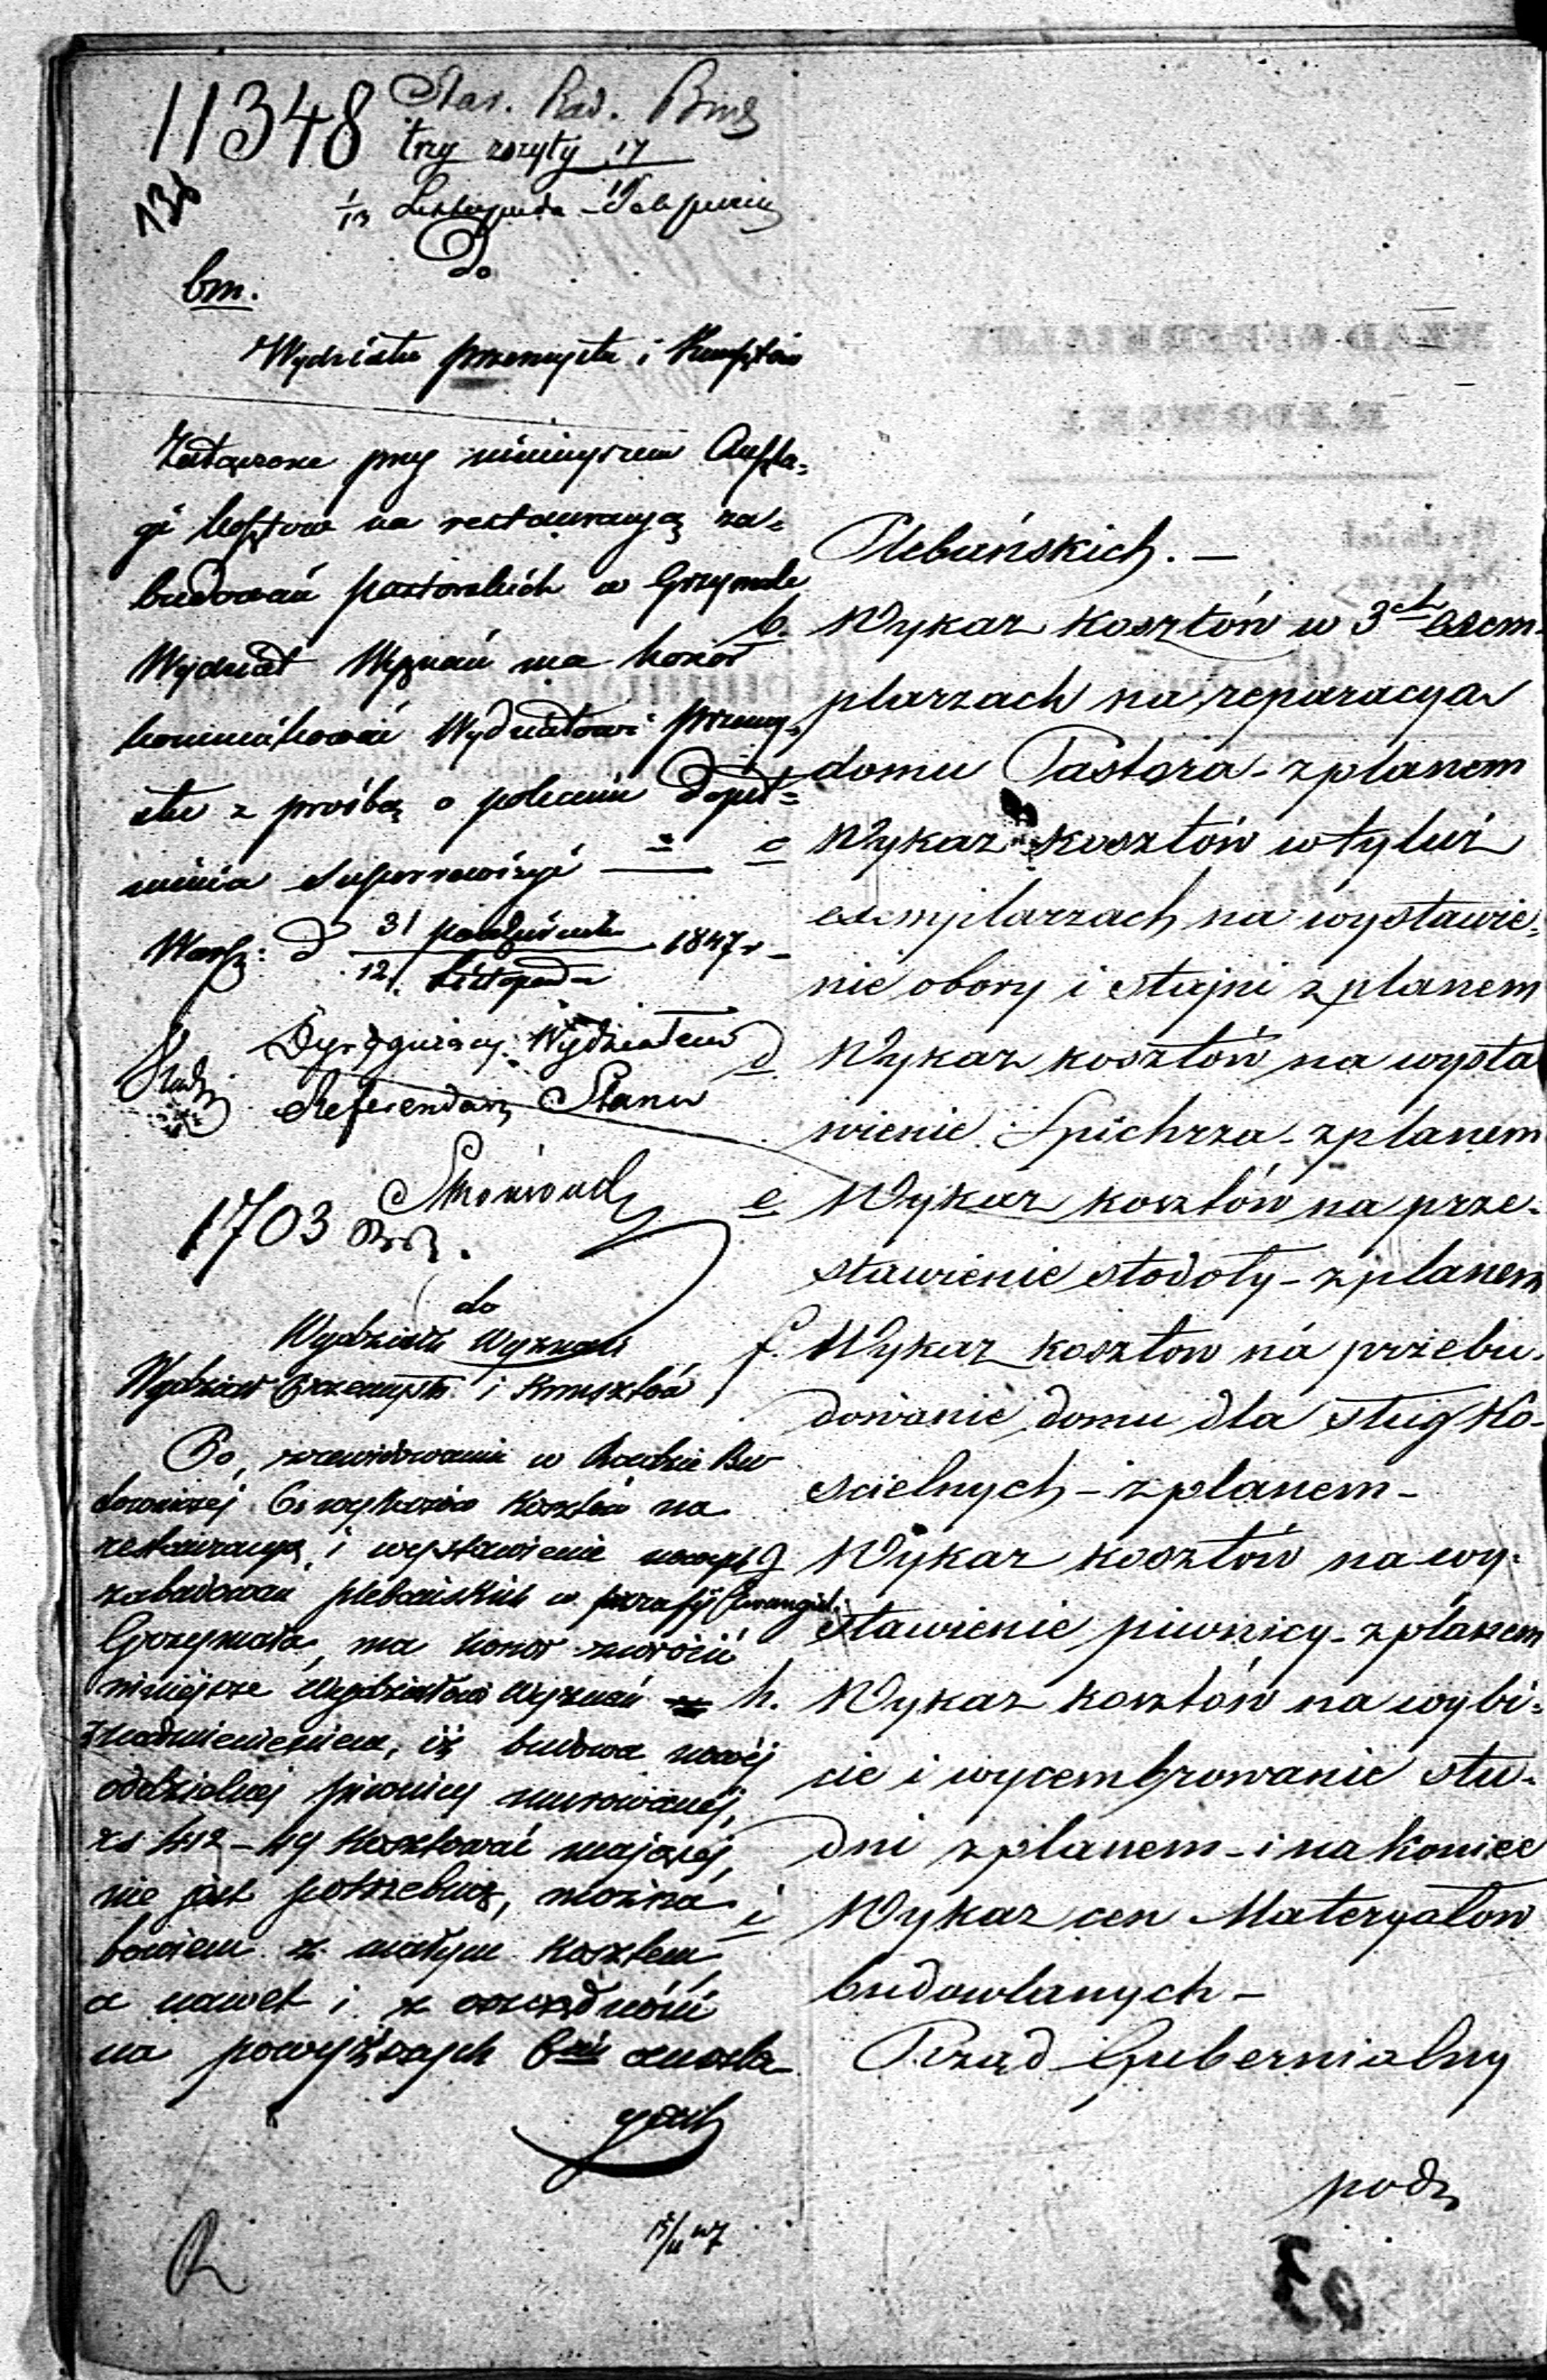 11348
trzy zeszyty 17
1/13 Listopada
Do
bm.
Wydziału przemysłu i Kunsztów
Załączone przy niniejszem Anszla=
gi kosztów na restauracyą za=
budowań pastorskich w Grzymale
Wydział Wyznań ma honor
komunikować Wydziałowi przemy=
słu z prośbą o polecenie dopeł=
nienia superrewizyi —
Warsz: d 31 października / 12 Listopada 1847 r –
Dyrygujący Wydziałem
Referendarz Stanu
1703
do
Wydziału Wyznań
Wydział Przemysłu i Kunsztów
Po zrewidowaniu w Radzie Bu
downiczej 6 wykazów kosztów na
restauracyą i wystawienie nowych
zabudowań plebańskich w parafij Ewangiel:
Grzymała, ma honor zwrócić
niniejsze Wydziałowi Wyznań
z nadmienieniem, iż budowa nowéj
oddzielnej piwnicy murowanéj,
rs 412 – 49 kosztować mającej,
nie jest potrzebną, można
bowiem z małym kosztem
a nawet i z oszczędności
na powyższych
15/11 47
Plebańskich. —
b. Wykaz kosztów w 3ch exem=
plarzach na reparacya
domu Pastora – z planem
c Wykaz kosztów w tyluż
exemplarzach na wystawie=
nie obory i stajni z planem
d. Wykaz kosztów na wysta
wienie Spichrza – z planem
e. Wykaz kosztów na prze=
stawienie stodoły – z planem
f. Wykaz kosztow na przebu=
dowanie domu dla sług Ko=
scielnych – z planem –
g Wykaz kosztów na wy=
stawienie piwnicy – z planem
h. Wykaz kosztów na wybi=
cie i wycembrowanie stu=
dni z planem – i na koniec
i Wykaz cen Materyałow
budowlanych –
Rząd Gubernialny
podz